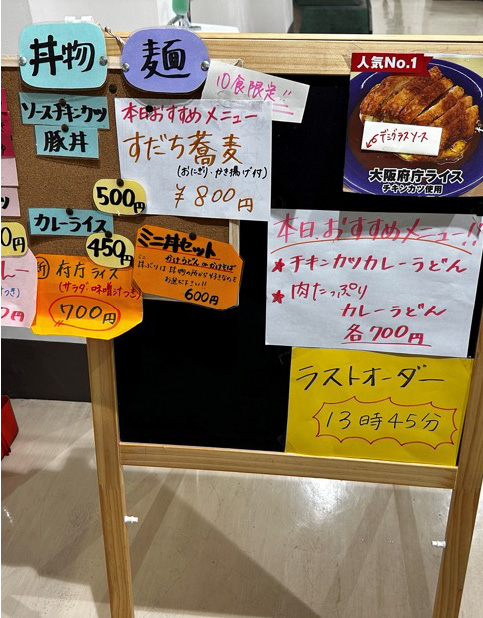 丼物
麺
10食限定!!
ソースチキンカツ
豚丼
500円
カレーライス
450円
本日おすすめメニュー
すだち蕎麦
(おにぎり・かき揚げ付)
¥800円
ミニ丼セット
かけうどんorかけそば
600円
府庁ライス
(サラダ・味噌汁つき)
700円
人気No.1
デミグラスソース
大阪府庁ライス
チキンカツ使用
本日おすすめメニュー!!
★チキンカツカレーうどん
★肉たっぷり
カレーうどん
各700円
ラストオーダー
13時45分